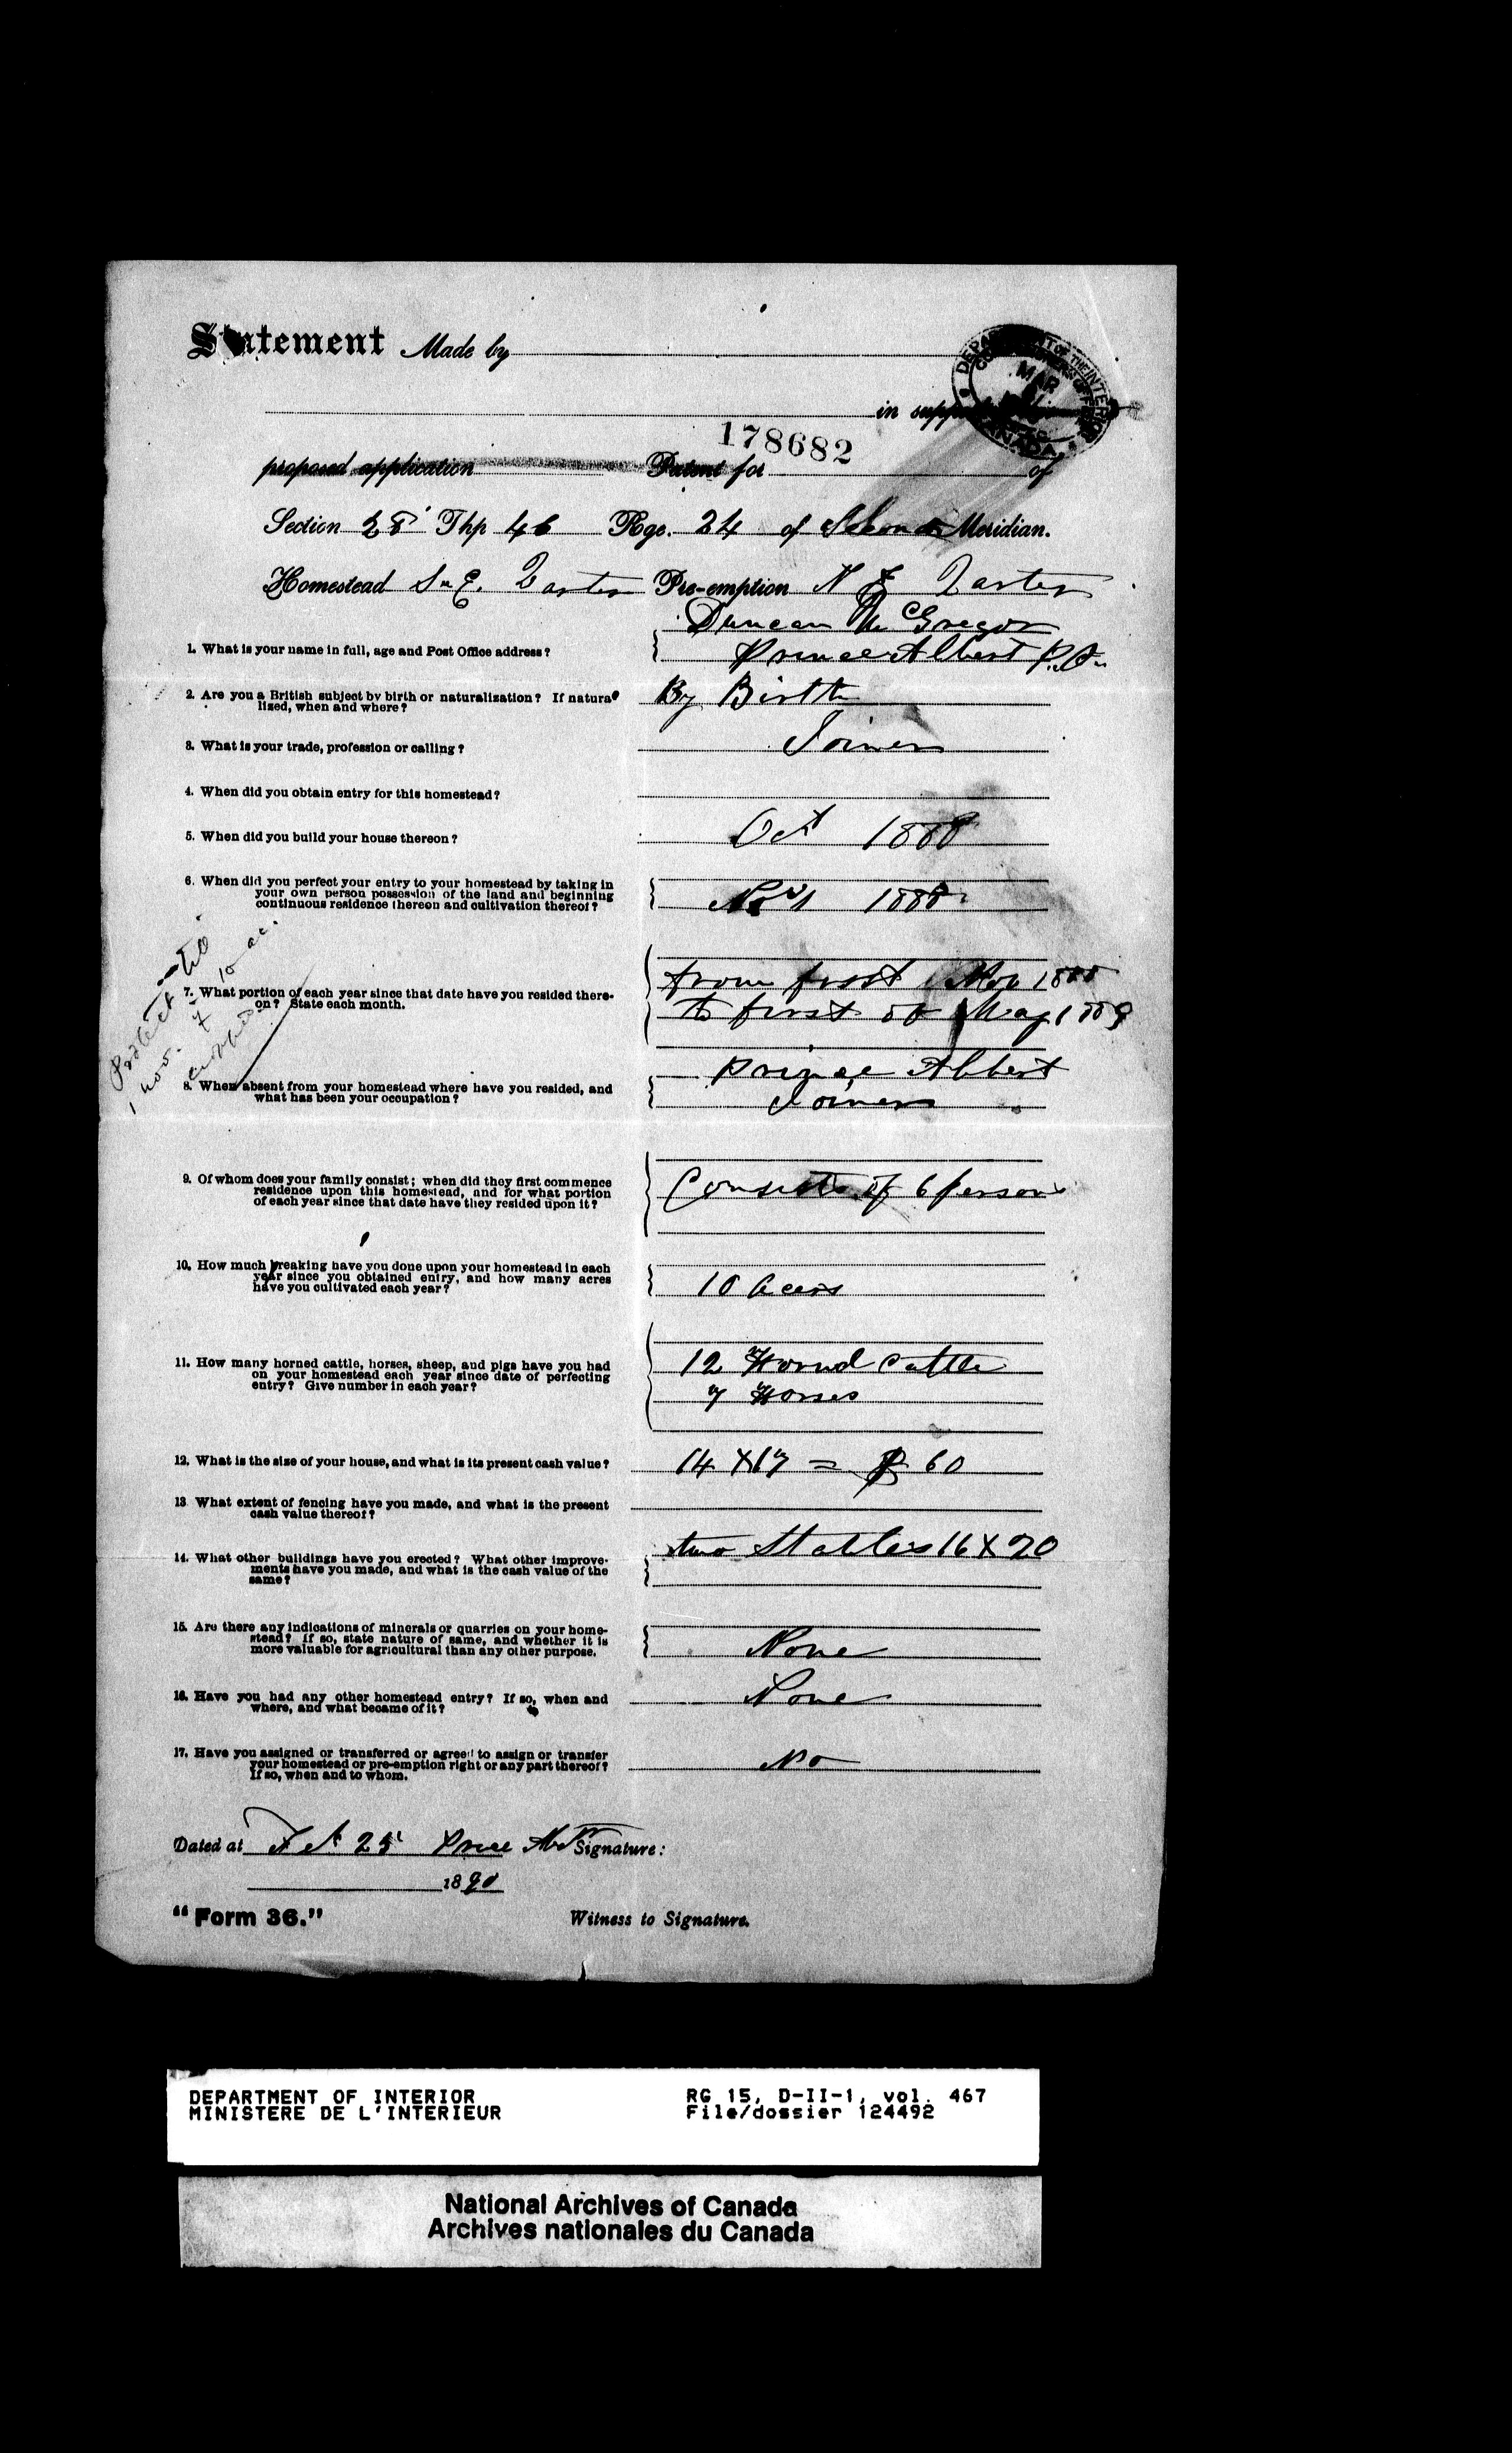 Statement Made by
DEPARTMENT OF THE INTERIOR
MAR
CANADA
in support
178682
proposed application Patent for of
Section 28 Thp 46 Rge. 24 of Second Meridian.
Homestead S. E. Qarter Pre-emption N E Qarter
Duncan McGregor
1. What is your name in full, age and Post Office address?
Prince Albert P.O.
2. Are you a British subject by birth or naturalization? If natura-
lized, when and where?
By Birth
3. What is your trade, profession or calling?
Joiner
4. When did you obtain entry for this homestead?
5. When did you build your house thereon?
Oct 1888
6. When did you perfect your entry to your homestead by taking in
your own person possession of the land and beginning
continuous residence thereon and cultivation thereof?
Nov 1 1888
7. What portion of each year since that date have you resided there-
on? State each month.
from first Nov 1888
to first of May 1889
Protect
8. When absent from your homestead where have you resided, and
what has been your occupation?
Prince Albert
Joiner
9. Of whom does your family consist; when did they first commence
residence upon this homestead, and for what portion
of each year since that date have they resided upon it?
Consists of 6 persons
10. How much breaking have you done upon your homestead in each
year since you obtained entry, and how many acres
have you cultivated each year?
10 Acers
11. How many horned cattle, horses, sheep, and pigs have you had
on your homestead each year since date of perfecting
entry? Give number in each year?
12 Hornd Cattle
7 Horses
12. What is the size of your house, and what is its present cash value?
14 X 17 = $ 60
13 What extent of fencing have you made, and what is the present
cash value thereof?
14. What other buildings have you erected? What other improve-
ments have you made, and what is the cash value of the
same?
two Stables 16 X 20
15. Are there any indications of minerals or quarries on your home-
stead? If so, state nature of same, and whether it is
more valuable for agricultural than any other purpose.
None
16. Have you had any other homestead entry? If so, when and
where, and what became of it?
None
17. Have you assigned or transferred or agreed to assign or transfer
your homestead or pre-emption right or any part thereof?
If so, when and to whom.
No
Dated at Feb 25 Signature:
1890
"Form 36."
Witness to Signature.
DEPARTMENT OF INTERIOR RG 15, D-II-1, vol. 467
MINISTERE DE L'INTERIEUR File/dossier 124492
National Archives of Canada
Archives nationales du Canada